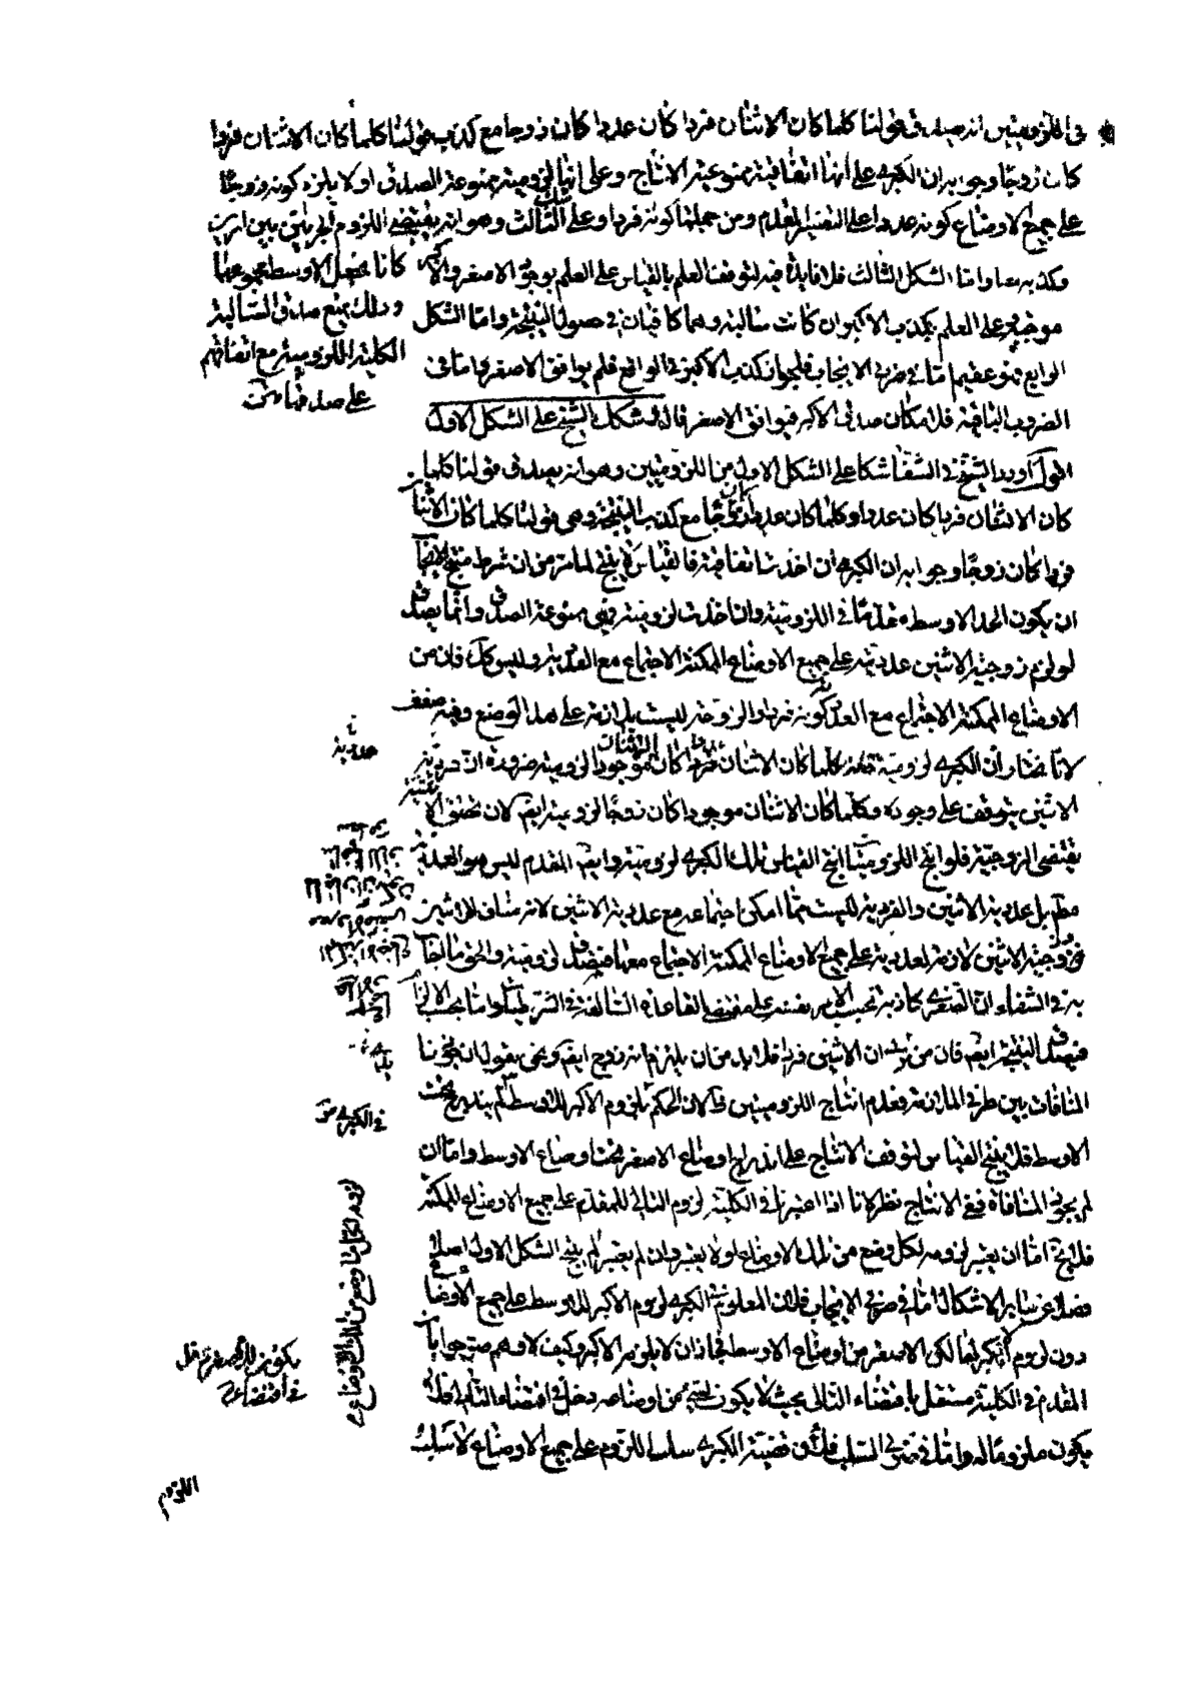 في اللزوميتين انه يصدق قولنا كلما كان الاثنان فردا كان عددا كان زوجا مع كذب قولنا كلما كان الاثنان فردا
كان زوجا وجوابه ان الكبرى على انها اتفاقية ممنوعة الانتاج وعلى انها لزومية ممنوعة الصدق اولا يلزم كونه زوجا
على جميع اوضاع كونه عددا على التقدير المقدم ومن جملتها كونه فردا وعلى الثالث وهو انه يقتضى اللزوم الجزئى بين امرين
وكذبه واما الشكل الثالث فلا فايدة فيه لتوقف العلم بالقياس على العلم بوجود الاصغر والاكبر
موجبة وعلى العلم بكذب الاكبر ان كانت سالبة وهما كافيان في حصول النتيجة واما الشكل
الرابع فهو عقيم اما في ضربي الايجاب فلجواز كذب الاكبر في الواقع فلم يوافق الاصغر واما في
الضروب الباقية فلامكان صدق الاكبر فيوافق الاصغر قال وشكك الشيخ على الشكل الاول
اقول اورد الشيخ في الشفا شكا على الشكل الاول من اللزوميتين وهو انه يصدق قولنا كلما
كان الاثنان فردا كان عددا وكلما كان عددا كان زوجا مع كذب النتيجة وهى قولنا كلما كان الاثنا
فردا كان زوجا وجوابه ان الكبرى ان اخذت اتفاقية فالقياس لا ينتج لما مر من ان شرط منتج الايجا
ان يكون الحد الاوسط مقدما في اللزومية وان اخذت لزومية فهى ممنوعة الصدق وانما يصدق
لو لزم زوجية الاثنين عدديته على جميع الاوضاع الممكنة الاجتماع مع العددية وليس كك فان من
الاوضاع الممكنة الاجتماع مع العددية كونه فردا والزوجية ليست بلازمة على هذا الوضع وفيه ضعف
لانا نختار ان الكبرى لزومية كلما كان الاثنان فردا كان الاثنان موجودا لزومية ضرورة ان فردية
الاثنين يتوقف على وجوده وكلما كان الاثنان موجودا كان زوجا لزومية ايضا لان تحقق الا
يقتضى الزوجية فلو انتج اللزوميتان انتج القياس تلك الكبرى لزومية وايضا المقدم ليس هو العددية
مطلقا بل عددية الاثنين والفردية ليست مما امكن اجتماعه مع عددية الاثنين لانه مناف للاثنين
فزوجية الاثنين لازمة لعدديته على جميع الاوضاع الممكنة الاجتماع معها فيصدق لزومية والحق ما اجا
به في الشفاء ان الصغرى كاذبة بحسب الامر نفسه
فيصدق النتيجة ايضا فان من يرى ان الاثنين فرد فلا بد من ان يلتزم انه زوج ايضا ونحن نقول ان جوزنا
المنافات بين طرفي الملازمة فعدم انتاج اللزوميتين
الاوسط فلا ينتج القياس لتوقف الانتاج على اندراج اوضاع الاصغر تحت اوضاع الاوسط واما ان
لم يجوز المنافاة ففي الانتاج نظر لانا اذا اعتبرنا في الكلية لزوم التالي للمقدم على جميع الاوضاع الممكنة
فلا يخ اما ان يعتبر لزومه لكل وضع من تلك الاوضاع اولا يعتبر وان لم يعتبر لم ينتج الشكل الاول اصلا
فضلا عن ساير الاشكال اما في ضربي الايجاب فلان المعلوم من الكبرى لزوم الاكبر للاوسط على جميع الاوضا
دون لزوم الاكبر لها لكن الاصغر من اوضاع الاوسط فجاز ان لا يلزمه الاكبر وكيف لا وهم صرحوا بان
المقدم في الكلية مستقل باقتضاء التالي بحيث لا يكون لشىء من اوضاعه دخل في اقتضاء التالي فلا
يكون ملزوما له واما في ضربي السلب فلان قضية الكبرى سلب اللزوم على جميع الاوضاع لا سلب
كانا بجعل الاوسط مجموعهما
وذلك يمنع صدق السالبة
الكلية اللزومية مع اتفاقهم
على صدقها
عددية
في الكبرى
لزومه لكل وضع من تلك الاوضاع
اللزوم